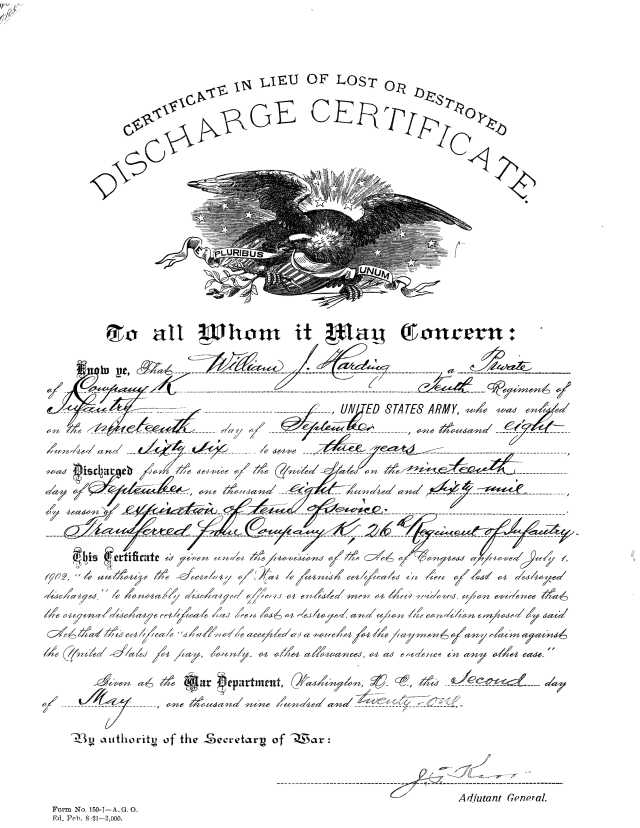 CERTIFICATE IN LIEU OF LOST OR DESTROYED
DISCHARGE CERTIFICATE.
PLURIBUS
UNUM
To all Whom it May Concern:
Know ye, That William J. Harding a Private
of Company K Tenth Regiment of
Infantry, UNITED STATES ARMY, who was enlisted
on the nineteenth day of September, one thousand eight
hundred and Sixty Six to serve three years,
was Discharged from the service of the United States on the nineteenth
day of September, one thousand eight hundred and Sixty nine
by reason of expiration of term of service.
Transferred from Company K, 26th Regiment of Infantry.
This Certificate is given under the provisions of the Act of Congress approved July 1,
1902, "to authorize the Secretary of War to furnish certificates in lieu of lost or destroyed
discharges," to honorably discharged officers or enlisted men or their widows, upon evidence that
the original discharge certificate has been lost or destroyed, and upon the condition imposed by said
Act that this certificate "shall not be accepted as a voucher for the payment of any claim against
the United States for pay, bounty, or other allowances, or as evidence in any other case."
Given at the War Department, Washington, D. C., this Second day
of May, one thousand nine hundred and twenty-one.
By authority of the Secretary of War:
Adjutant General.
Form No. 150-1—A. G. O.
Ed. Feb. 8-21—2,000.